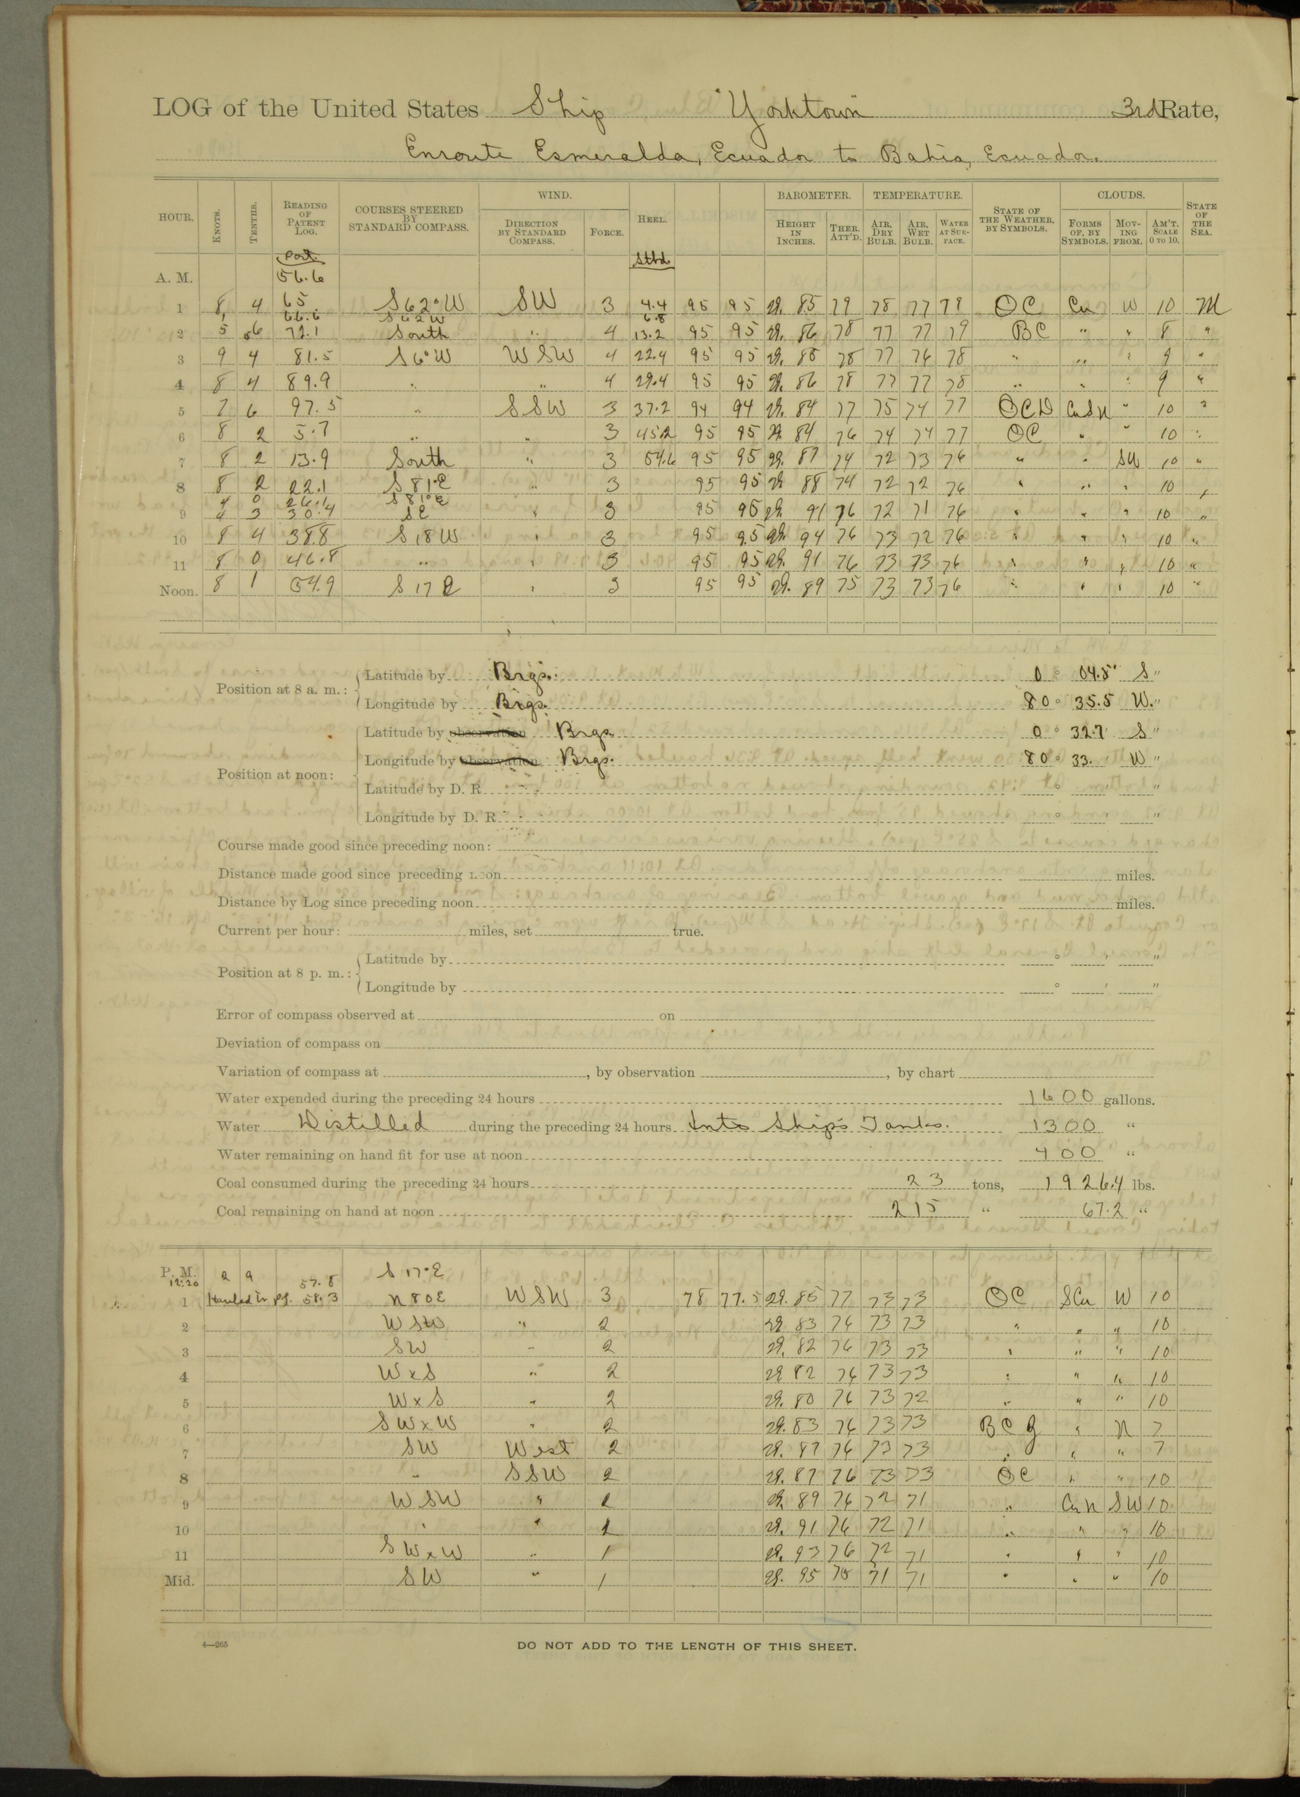 LOG of the United States Ship "Yorktown" 3rd Rate,
Enroute Esmeralda, Ecuador to Bahia, Ecuador.
HOUR. KNOTS. TENTHS. READING OF PATENT LOG. COURSES STEERED BY STANDARD COMPASS. WIND. DIRECTION BY STANDARD COMPASS. FORCE. HEEL. BAROMETER. HEIGHT IN INCHES. THER. ATT'D. TEMPERATURE. AIR, DRY BULB. AIR, WET BULB. WATER AT SURFACE. STATE OF THE WEATHER, BY SYMBOLS. CLOUDS. FORMS OF, BY SYMBOLS. MOVING FROM. AM'T. SCALE 0 TO 10. STATE OF THE SEA.
Port Stbd
A. M. 56.6
1 8 4 65 S 62° W SW 3 4.4 95 95 29. 85 79 78 77 78 OC Cu W 10 M
1 66.6 S 62 W 6.8
2 5 .6 72.1 South " 4 13.2 95 95 29. 86 78 77 77 79 BC " " 8 "
3 9 4 81.5 S 6° W WSW 4 22.4 95 95 29. 88 78 77 76 78 " " " 9 "
4 8 4 89.9 " " 4 29.4 95 95 29. 86 78 77 77 78 " " " 9 "
5 7 6 97.5 " SSW 3 37.2 94 94 29. 84 77 75 74 77 OCD Cu SN " 10 "
6 8 2 5.7 " " 3 45.2 95 95 29. 84 76 74 74 77 OC " " 10 "
7 8 2 13.9 South " 3 54.6 95 95 29. 87 74 72 73 76 " " SW 10 "
8 8 2 22.1 S 81° E " 3 95 95 29. 88 74 72 72 76 " " " 10 "
4 0 26.1 S 81° E
9 4 3 30.4 SE " 3 95 95 29. 91 76 72 71 76 " " " 10 "
10 8 4 38.8 S 18 W " 3 95 95 29. 94 76 73 72 76 " " " 10 "
11 8 0 46.8 " " 3 95 95 29. 91 76 73 73 76 " " " 10 "
Noon. 8 1 54.9 S 17 E " 3 95 95 29. 89 75 73 73 76 " " " 10 "
Position at 8 a. m.: Latitude by Brgs. 0° 04.5' S "
Longitude by Brgs. 80° 35.5 W. "
Position at noon: Latitude by observation Brgs 0° 32.7 S "
Longitude by observation Brgs. 80° 33. W "
Latitude by D. R. ° ' "
Longitude by D. R. ° ' "
Course made good since preceding noon:
Distance made good since preceding noon miles.
Distance by Log since preceding noon miles.
Current per hour: miles, set true.
Position at 8 p. m.: Latitude by ° ' "
Longitude by ° ' "
Error of compass observed at on
Deviation of compass on
Variation of compass at , by observation , by chart
Water expended during the preceding 24 hours 1600 gallons.
Water Distilled during the preceding 24 hours Into Ship's Tanks. 1300 "
Water remaining on hand fit for use at noon 400 "
Coal consumed during the preceding 24 hours 23 tons, 1926.4 lbs.
Coal remaining on hand at noon 215 " 67.2 "
P. M.
12:20 2 9 57.8 S 17° E
1 Hauled in p.l. 58.3 N 80 E WSW 3 78 77.5 29. 85 77 73 73 OC SCu W 10
2 WSW " 2 29. 83 76 73 73 " " " 10
3 SW " 2 29. 82 76 73 73 " " " 10
4 W x S " 2 29 82 76 73 73 " " " 10
5 W x S " 2 29. 80 76 73 72 " " " 10
6 SW x W " 2 29. 83 76 73 73 BCg " N 7
7 SW West 2 29. 87 76 73 73 " " " 7
8 " SSW 2 29. 87 76 73 73 OC " " 10
9 WSW " 2 29. 89 76 72 71 " Cu N SW 10
10 " " 1 29. 91 76 72 71 " " " 10
11 SW x W " 1 29. 93 76 72 71 " " " 10
Mid. SW " 1 29. 95 75 71 71 " " " 10
4—265
DO NOT ADD TO THE LENGTH OF THIS SHEET.